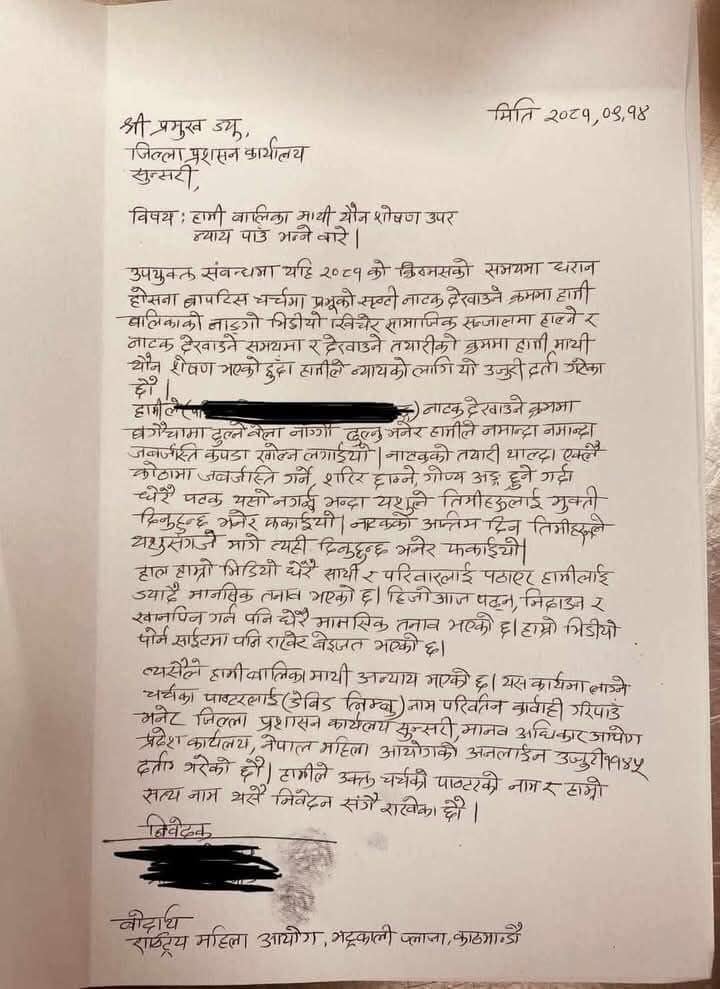 मिति २०८१,०९,१४
श्री प्रमुख ज्यू,
जिल्ला प्रशासन कार्यालय
सुन्सरी,
विषय : हामी बालिका माथी यौन शोषण उपर
न्याय पाउं भन्ने बारे |
उपयुक्त संवन्धमा यहि २०८१ को क्रिसमसको समयमा धरान
होसना बापटिस चर्चमा प्रभूको सृष्टी नाटक देखाउने क्रममा हामी
बालिकाको नाङगो भिडीयो खिचेर सामाजिक सन्जालमा हाल्ने र
नाटक देखाउने समयमा र देखाउने तयारीको क्रममा हामी माथी
यौन शोषण भएको हुदाँ हामीले न्यायको लागि यो उजुरी दर्ता गरेका
छौं |
हामीले ( ) नाटक देखाउने क्रममा
बगैचामा डुल्ने बेला नाग्गो डुल्नु भनेर हामीले नमान्दा नमान्दा
जवर्जस्ति कपडा खोल्न लगाईयो | नाटकको तयारी थाल्दा एक्लै
कोठामा जवर्जस्ति गर्ने, शरिर छाम्ने, गोप्य अङ्ग छुने गर्दा
धेरै पटक यसो नगर्नु भन्दा यशुले तिमीहरुलाई मुक्ती
दिनुहुन्छ भनेर फकाईयो | नाटकको अन्तिम दिन तिमीहरुले
यशुसंग जे मागे त्यही दिनुहुन्छ भनेर फकाईयो |
हाल हाम्रो भिडियो धेरै साथी र परिवारलाई पठाएर हामीलाई
ज्यादै मानसिक तनाव भएको छ | हिजोआज पढ्न, निदाउन र
खानपिन गर्न पनि धेरै मानसिक तनाव भएको छ | हाम्रो भिडीयो
पोर्न साईटमा पनि राखेर बेइजत भएको छ |
त्यसैले हामी बालिका माथी अन्याय भएको छ | यस कार्यमा लाग्ने
चर्चका पाष्टरलाई (डेबिड लिम्बु) नाम परिवर्तन कार्वाही गरिपाउं
भनेर जिल्ला प्रशासन कार्यलय सुन्सरी, मानव अधिकार आयोग
प्रदेश कार्यलय, नेपाल महिला आयोगको अनलाईन उजुरी ११४५
दर्ता गरेको छौं | हामीले उक्त चर्चको पाष्टरको नाम र हाम्रो
सत्य नाम यसै निवेदन संगै राखेका छौं |
निवेदक
बोदार्थ
राष्ट्रिय महिला आयोग, भद्रकाली प्लाजा, काठमान्डौ